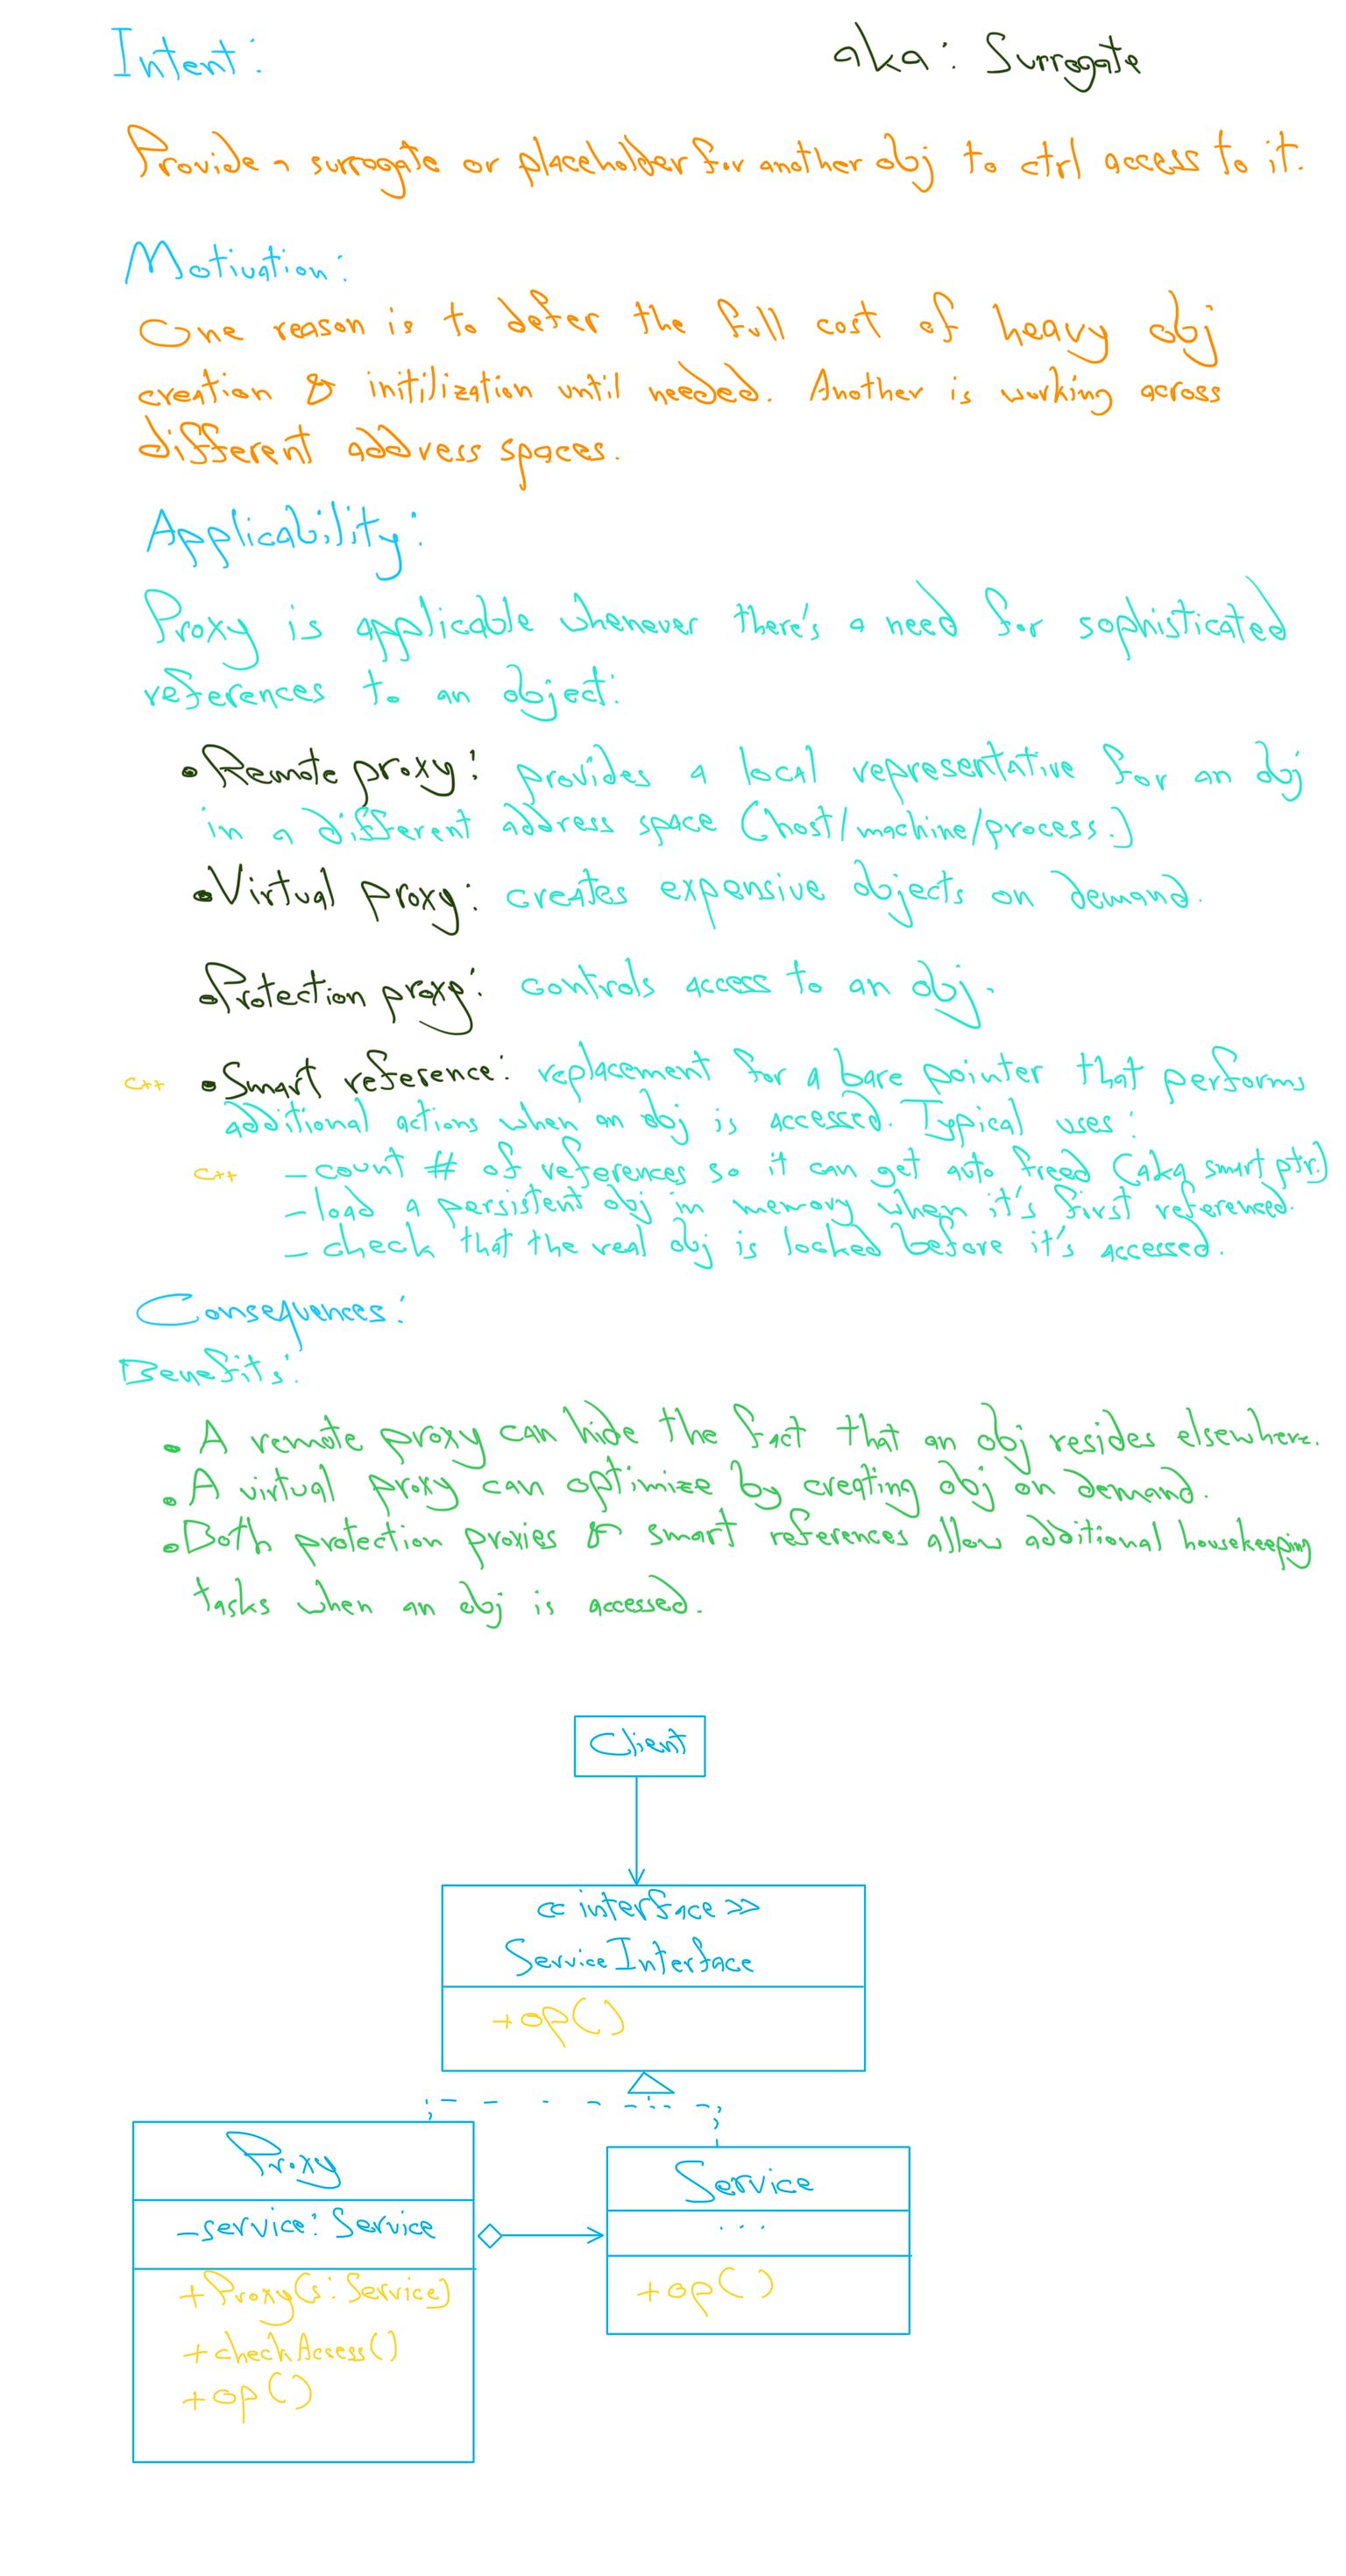 Intent:
aka: Surrogate
Provide a surrogate or placeholder for another obj to ctrl access to it.
Motivation:
One reason is to defer the full cost of heavy obj
creation & initilization until needed. Another is working across
different address spaces.
Applicability:
Proxy is applicable whenever there's a need for sophisticated
references to an object:
• Remote proxy: provides a local representative for an obj
in a different address space (host/machine/process.)
• Virtual proxy: creates expensive objects on demand.
• Protection proxy: controls access to an obj.
C++ • Smart reference: replacement for a bare pointer that performs
additional actions when an obj is accessed. Typical uses:
C++ - count # of references so it can get auto freed (aka smart ptr.)
- load a persistent obj in memory when it's first referenced.
- check that the real obj is locked before it's accessed.
Consequences:
Benefits:
• A remote proxy can hide the fact that an obj resides elsewhere.
• A virtual proxy can optimize by creating obj on demand.
• Both protection proxies & smart references allow additional housekeeping
tasks when an obj is accessed.
Client
<< interface >>
ServiceInterface
+op()
Proxy
-service: Service
+Proxy(s: Service)
+checkAccess()
+op()
Service
...
+op()